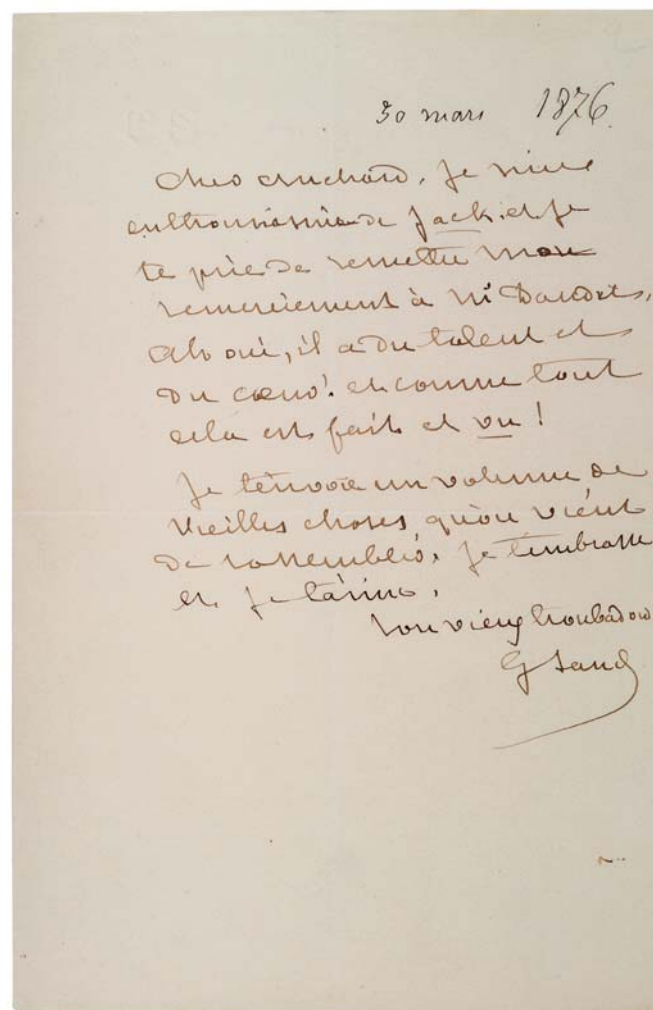 30 mars 1876.
Cher Cruchard, je suis
enthousiasmée de Jack. et je
te prie de remettre mon
remerciement à Mr Daudet,
Ah oui, il a du talent et
du cœur! et comme tout
cela est fait et vu!
Je t'envoie un volume de
vieilles choses qu'on vient
de rassembler. Je t'embrasse
et je t'aime.
Ton vieux troubadour
G Sand